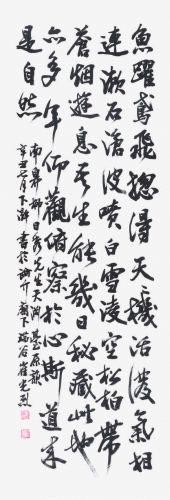 魚躍鳶飛揔得天〻機活潑氣相
連漱石滄波噴白雪凌空松柏帶
蒼烟遊息吾生能幾日秘藏此地
亦多年仰觀俯察於心斯道來
是自然
南皐柳日秀先生天淵臺原韻
辛丑月下澣書於廟下瑞谷崔光烈